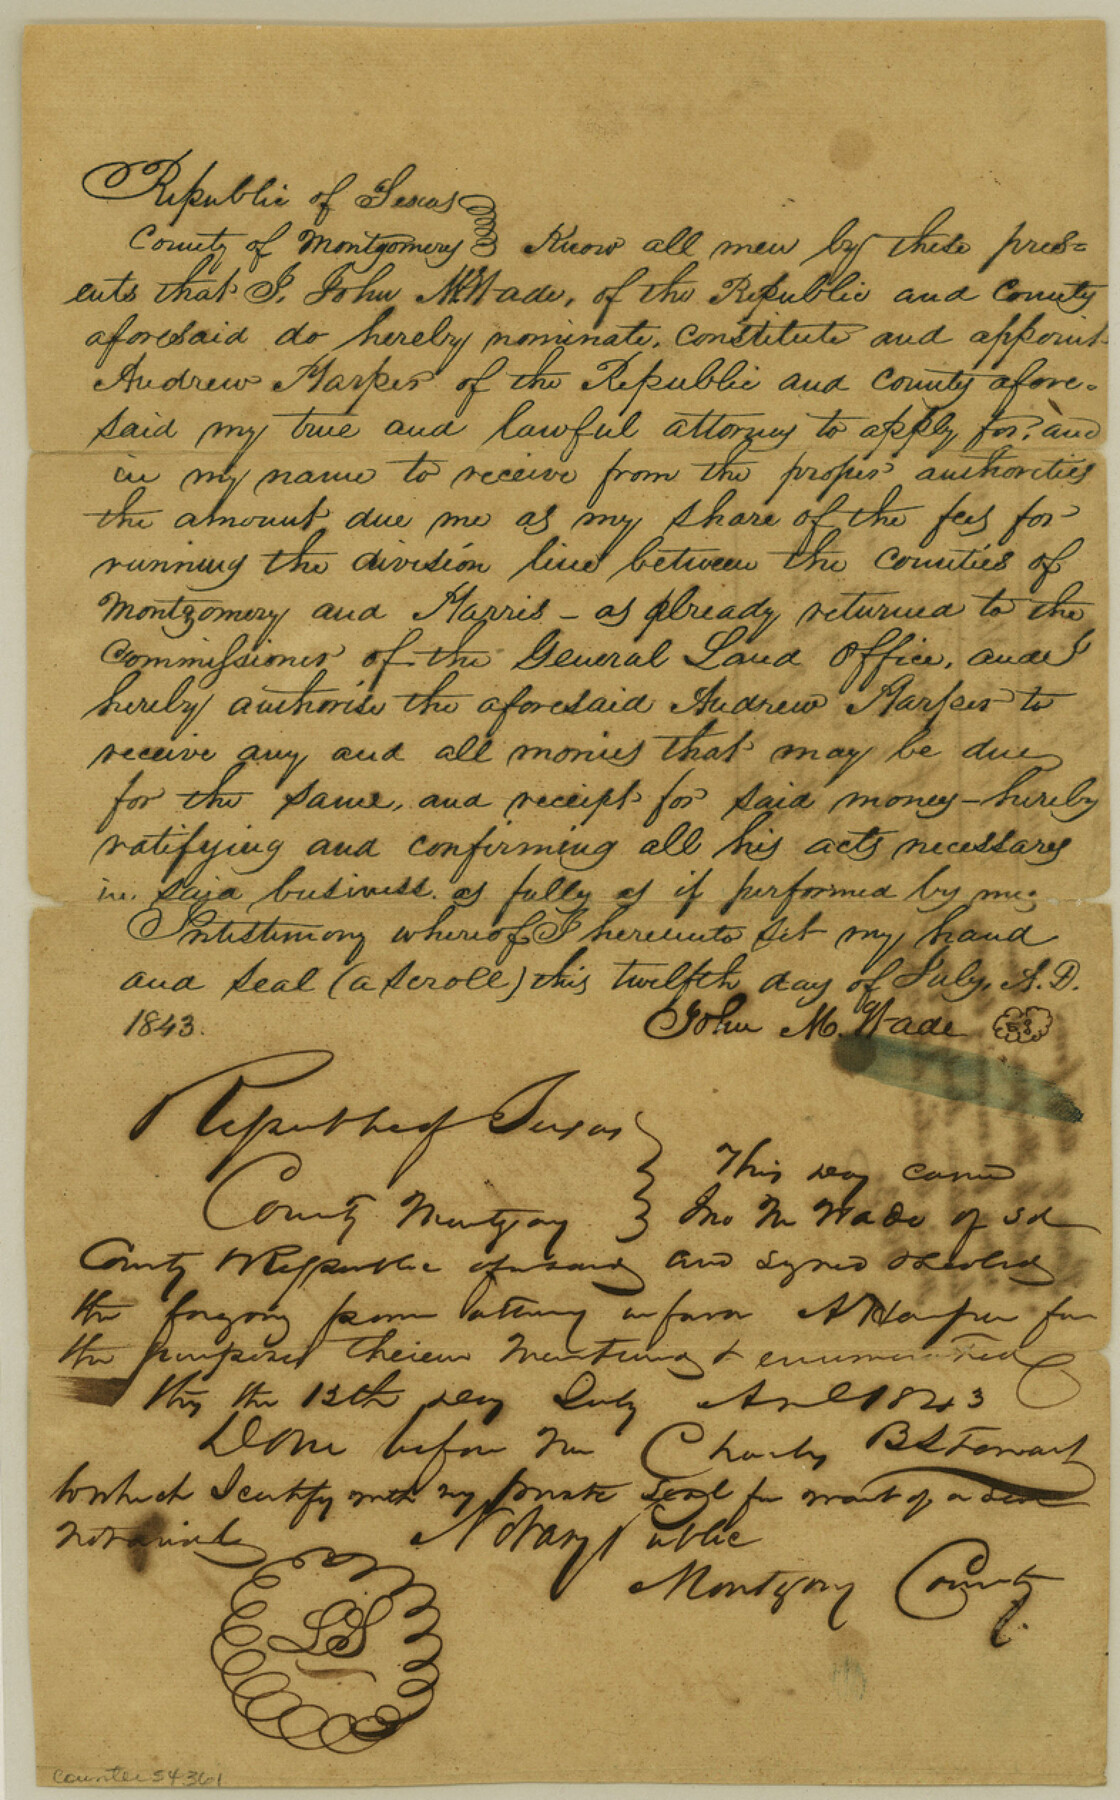 Republic of Texas
County of Montgomery Know all men by these pres=
ents that I, John M. Wade, of the Republic and County
aforesaid do hereby nominate, constitute and appoint
Andrew Harper of the Republic and County afore=
said my true and lawful attorney to apply for, and
in my name to receive from the proper authorities
the amount due me as my share of the fees for
running the division line between the Counties of
Montgomery and Harris – as already returned to the
Commissioner of the General Land Office, and I
hereby authorise the aforesaid Andrew Harper to
receive any and all monies that may be due
for the same, and receipt for said money – hereby
ratifying and confirming all his acts necessary
in said business as fully as if performed by me.
In testimony whereof I hereunto set my hand
and seal (a scroll) this twelfth day of July, A.D.
1843. John M. Wade
Republic of Texas
County Montgomy This day came
Jno M Wade of sd
County & Republic aforesaid and signed & sealed
the forgoing power attorney in favor A Harper for
the purposes therein Mentioned & enumerated
this the 13th day July 1843
Done before me Charles B Stewart
to which I certify with my private Seal for want of a seal
notarial Notary Public
Montgomy County
LS
counter 54361